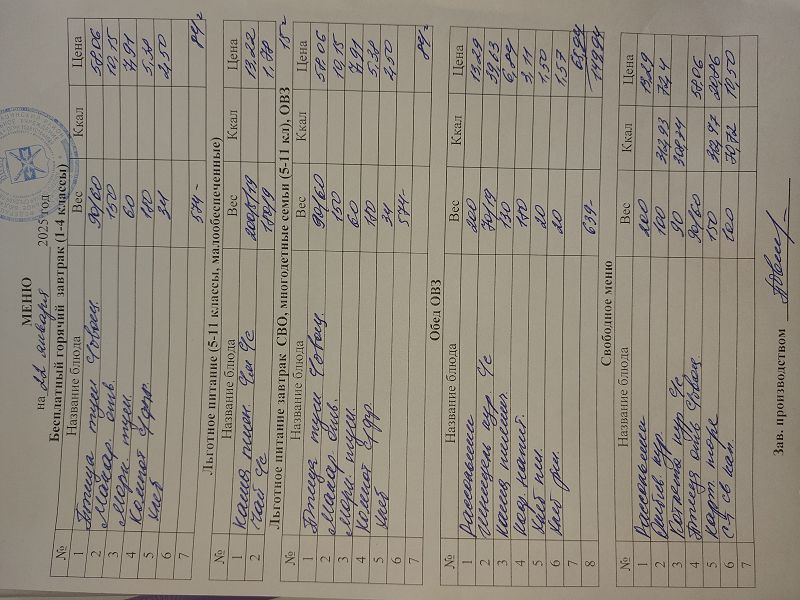 МЕНЮ
на 22 января 2025 год
Бесплатный горячий завтрак (1-4 классы)
№ Название блюда Вес Ккал Цена
1 Птица туш с овощ. 90/60 58.06
2 Макар. отв. 150 10,15
3 Морк. туш. 60 7,91
4 Компот с/фр. 180 5,38
5 Хлеб 34 2,50
6
7 514- 84-
Льготное питание (5-11 классы, малообеспеченные)
№ Название блюда Вес Ккал Цена
1 Каша пшен. 13,22
2 Чай с/с 180/9 1,78
15-
Льготное питание завтрак СВО, многодетные семьи (5-11 кл), ОВЗ
№ Название блюда Вес Ккал Цена
1 Птица туш с овощ. 90/60 58.06
2 Макар. отв. 150 10,15
3 Морк туш. 60 7,91
4 Компот с/фр. 180 5,38
5 Хлеб 34 2,50
6 514-
7 84-
Обед ОВЗ
№ Название блюда Вес Ккал Цена
1 Рассольник 200 13,29
2 Шницель кур. с/с 39,63
3 Каша 130 6,84
4 180 3,11
5 Хлеб пш. 20 1,50
6 Хлеб рж. 20 1,57
7 65,94
8 639-
Свободное меню
№ Название блюда Вес Ккал Цена
1 Рассольник 200 13,29
2 кур. 100 312,93
3 Котлета кур с/с 90 308,74
4 Птица отв с/овощ. 90/60 58.06
5 Карт пюре 150
6 100 10,50
7
Зав. производством